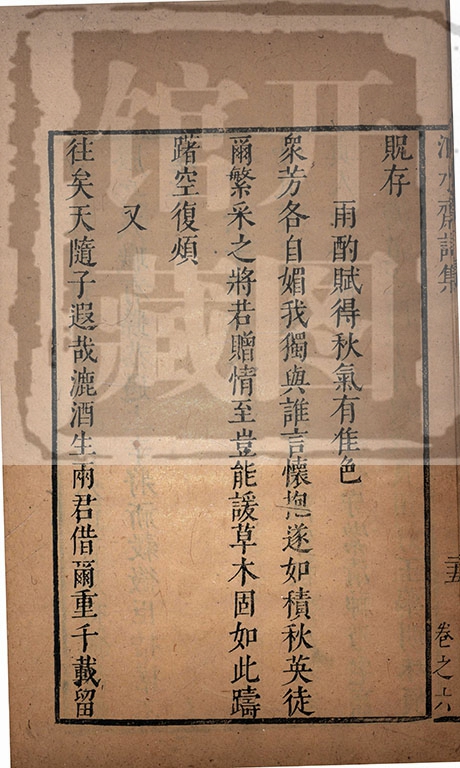 貺存
雨酌賦得秋氣有隹色
衆芳各自媚我獨與誰言懷抱遂如積秋英徒
爾繁采之將若贈情至豈能諼草木固如此躊
躇空復煩
又
往矣天隨子遐哉漉酒生兩君借爾重千載留
水齋詩集
卷之六
开图
馆藏